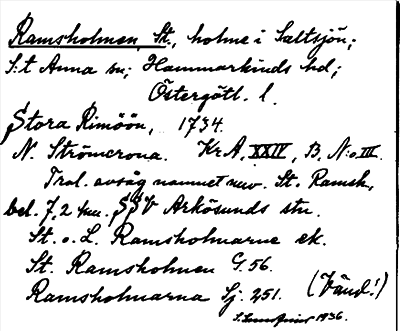 Ramsholmen, St., holme i Saltsjön;
S:t Anna sn; Hammarkinds hd;
Östergötl. l.
Stora Rimöön, 1734.
N. Strömcrona. Kr.A, XXIV, 13, N:o III.
Trol. avsåg namnet nuv. St. Ramsh.,
bel. 7,2 km. SSV Arkösunds stn.
St. o. L. Ramsholmarne ek.
St. Ramsholmen G. 56.
Ramsholmarna Sj. 251. (Vänd!)
1936.